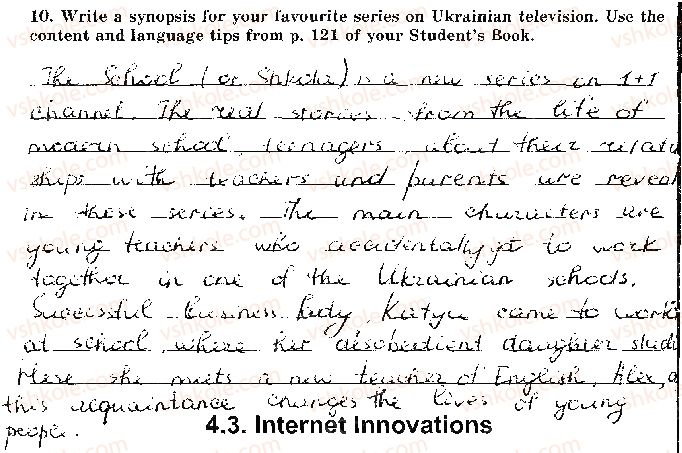 10. Write a synopsis for your favourite series on Ukrainian television. Use the
content and language tips from p. 121 of your Student's Book.
The School (or Shkola) is a new series on 1+1
channel. The real stories from the life of
modern school teenagers, about their relati
ships with teachers and parents are reveal
in these series. The main characters are
young teachers who accidentally got to work
together in one of the Ukrainian schools.
Successful business lady Katya came to work
at school where her disobedient daughter studi
Here she meets a new teacher of English, Alex, a
this acquaintance changes the lives of young
people.
4.3. Internet Innovations